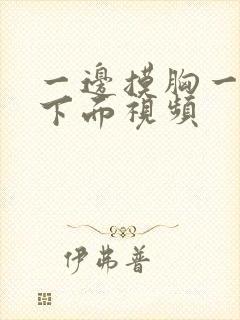 一邊摸胸一
下而視頻
伊弗普